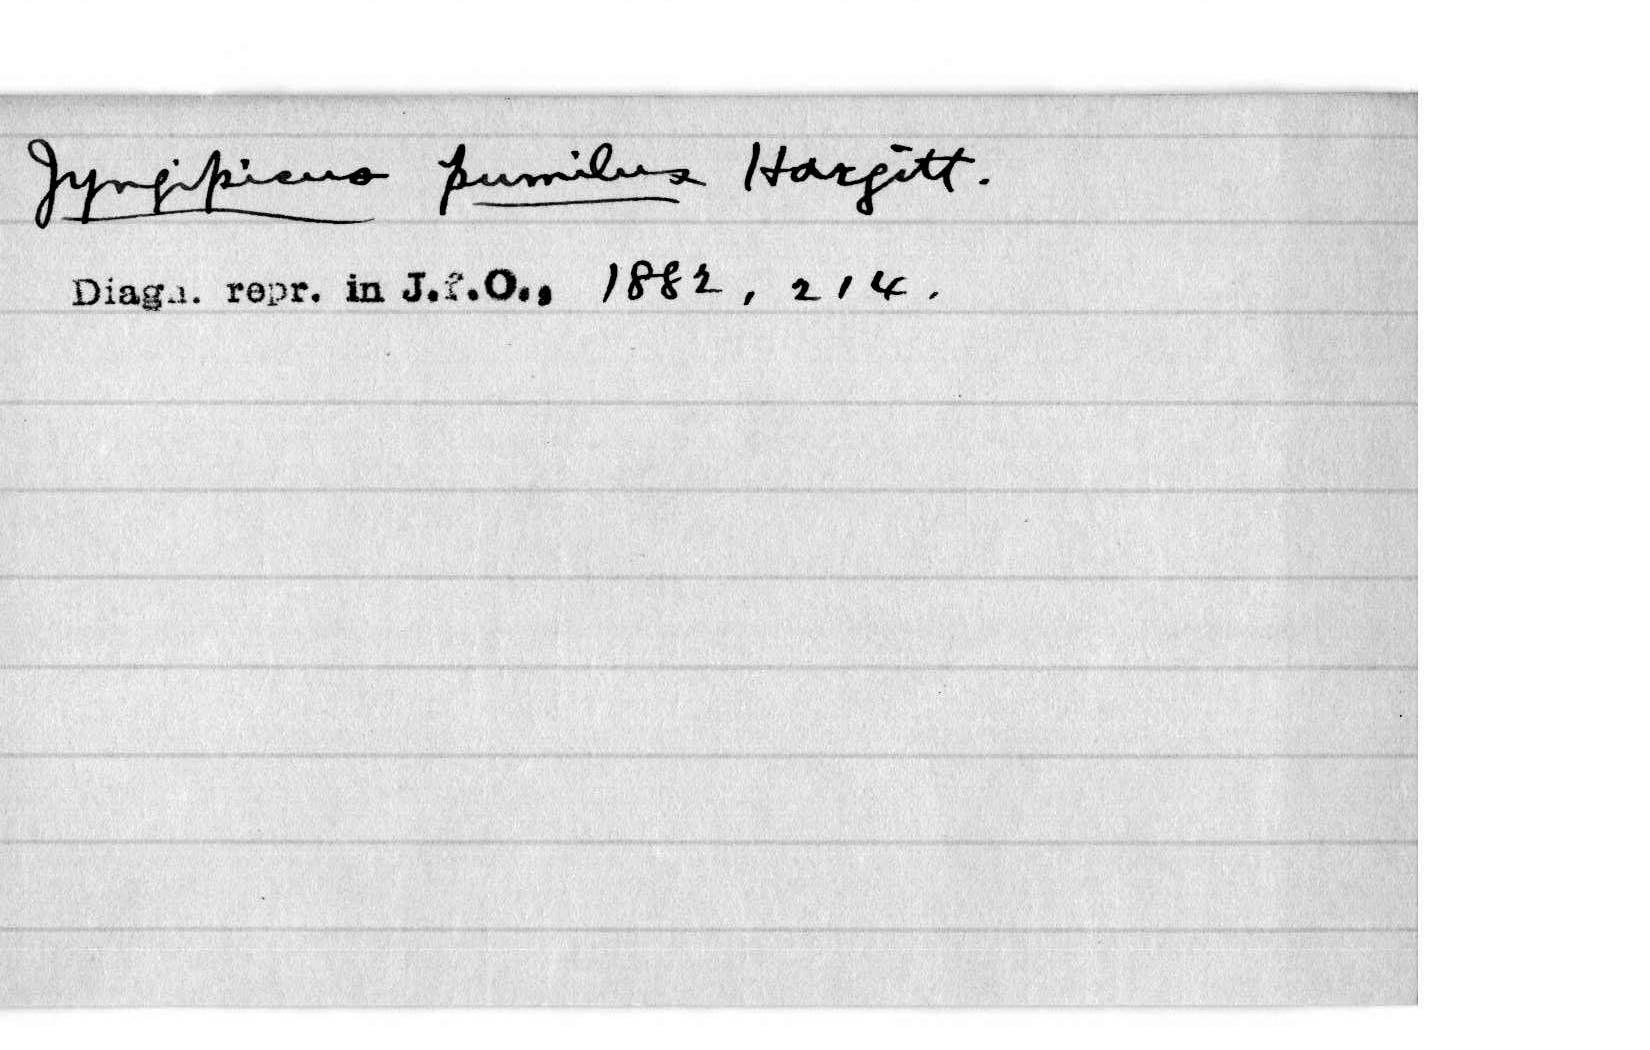 Jyngipicus pumilus Hargitt.
Diagn. repr. in J.f.O., 1882, 214.